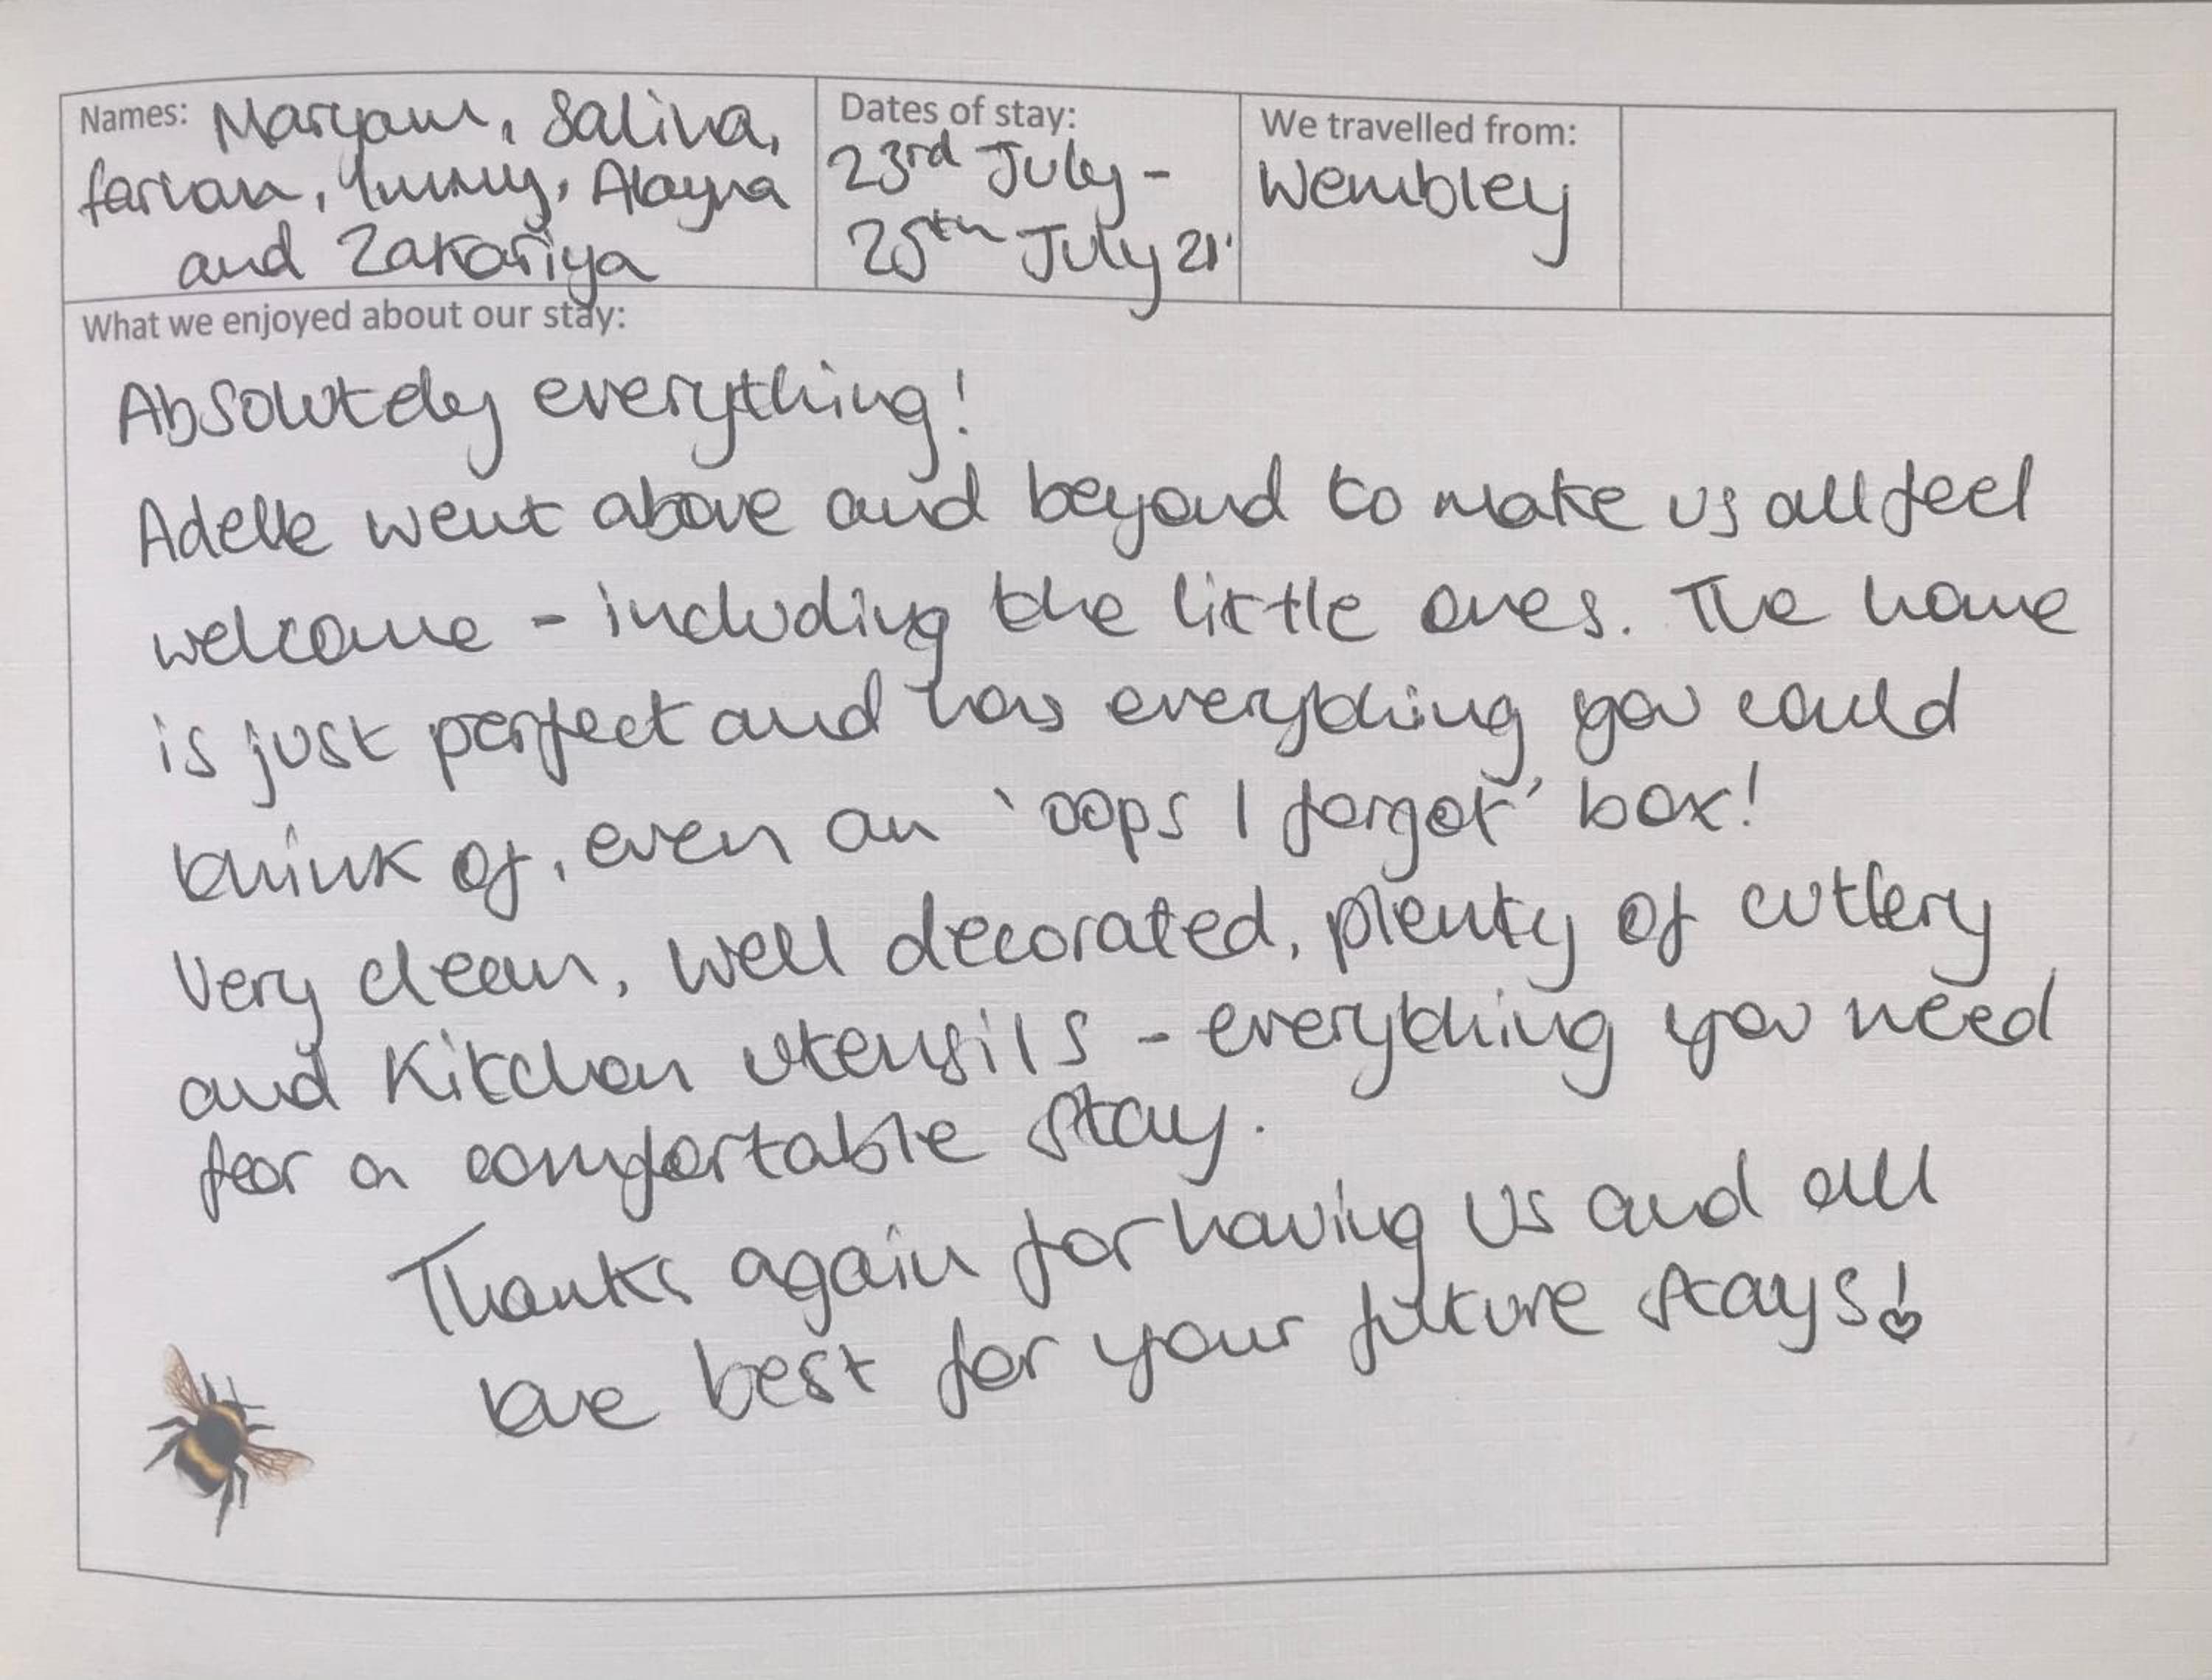 Names: Maryam, Salina,
farhan, Ymmy, Alayna
and Zakariya
Dates of stay:
23rd July -
25th July 21'
We travelled from:
Wembley
What we enjoyed about our stay:
Absolutely everything!
Adelle went above and beyond to make us all feel
welcome - including the little ones. The home
is just perfect and has everything you could
think of, even an 'oops I forgot' box!
Very clean, well decorated, plenty of cutlery
and kitchen utensils - everything you need
for a comfortable stay.
Thanks again for having us and all
the best for your future stays!